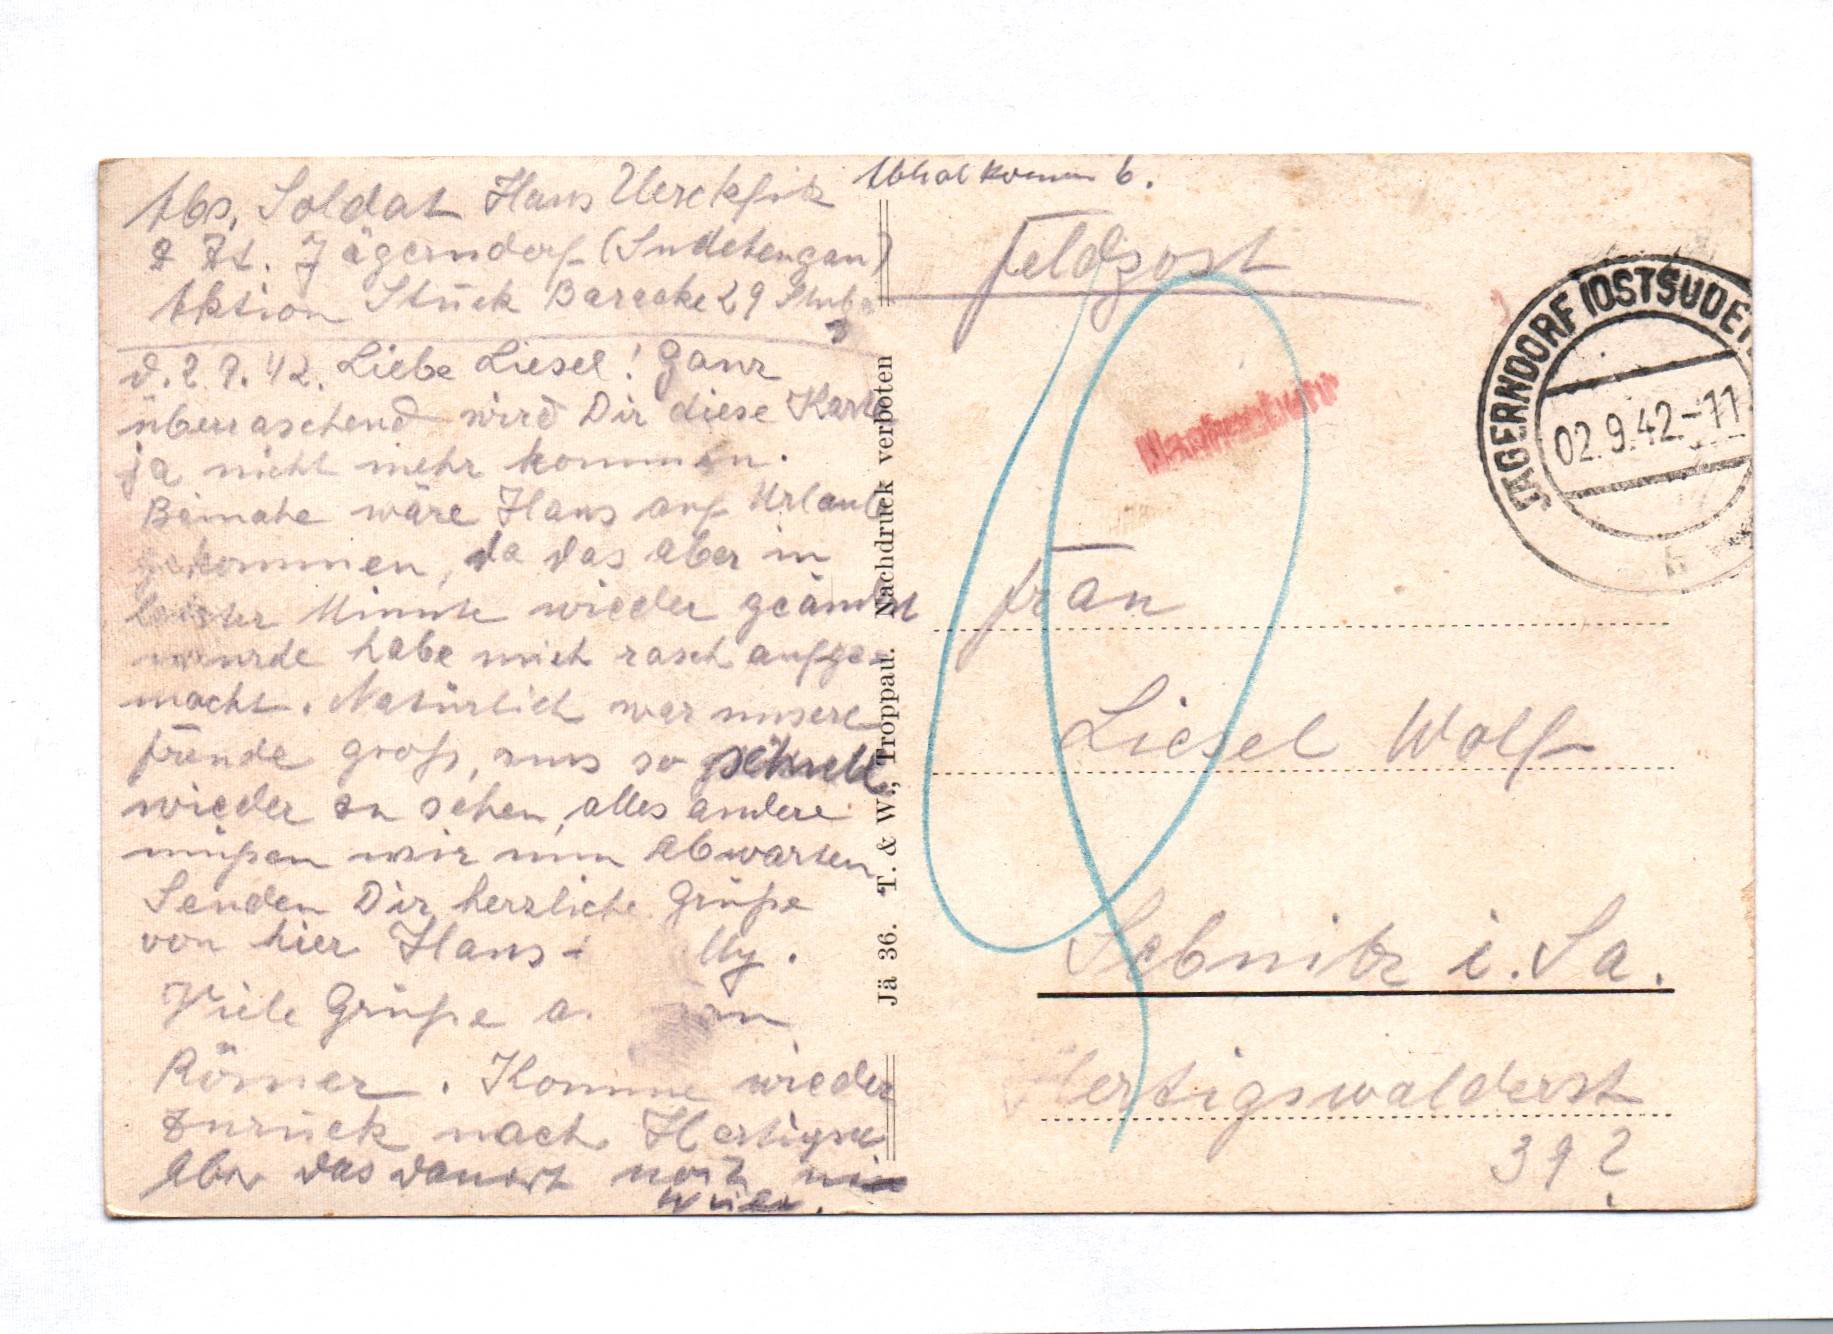 Abs. Soldat Hans
z Zt. Jägerndorf (Sudetengau)
Aktion Stück Baracke 29 Stube
3
d. 2.9.42. Liebe Liesel! Ganz
überraschend wird Dir diese Karte
ja nicht mehr kommen.
Beinahe wäre Hans auf Urlaub
gekommen, da das aber in
letzter Minute wieder geändert
wurde habe mich rasch aufge-
macht. Natürlich war unsere
Freude groß, uns so schnell
wieder zu sehen, alles andere
müßen wir nun abwarten
Senden Dir herzliche Grüße
von hier Hans
Viele Grüße a.
Römer. Komme wieder
zurück nach
Aber das dauert noch
Jä 36. T. & W., Troppau. Nachdruck verboten
Feldpost
JÄGERNDORF (OSTSUDET
02.9.42.-11
Frau
Liesel Wolf
Sebnitz i. Sa.
Hertigswalderst
39